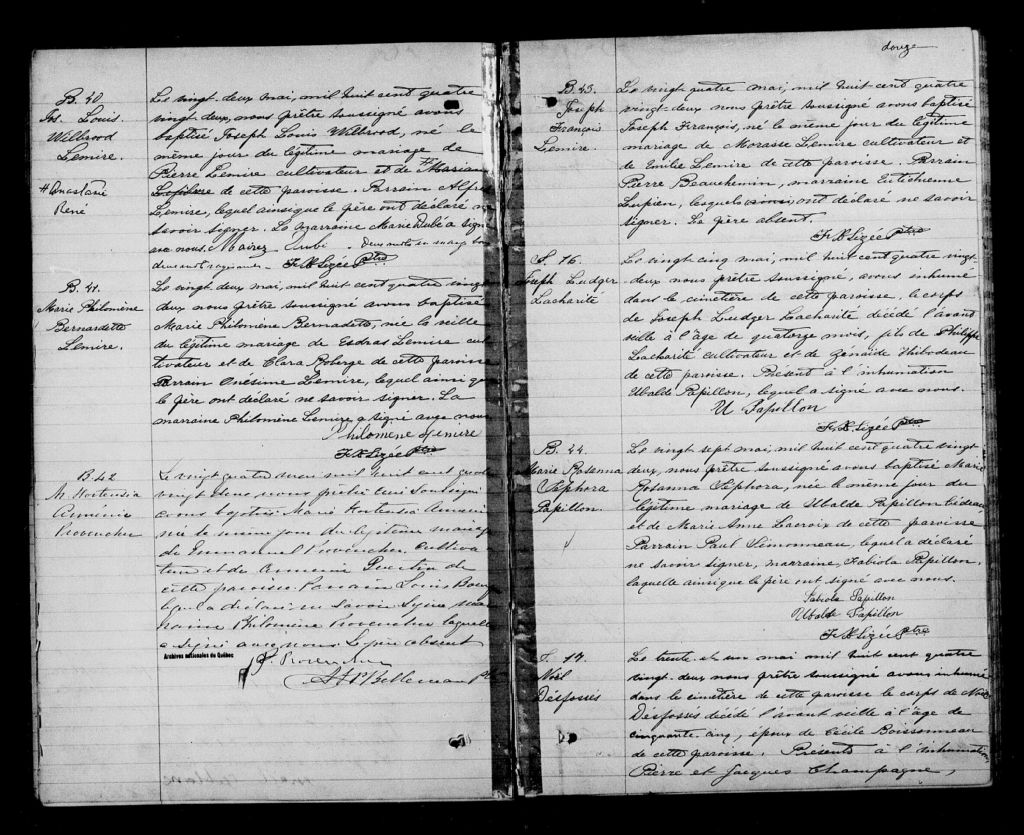 B. 40
Jos. Louis
Wilbrod
Lemire.
# Anastasie
René
Le vingt-deux mai, mil huit cent quatre
vingt-deux, nous prêtre soussigné avons
baptisé Joseph Louis Wilbrod, né le
même jour du légitime mariage de
Pierre Lemire cultivateur et de #
de cette paroisse. Parrain Alfred
Lemire, lequel ainsi que le père ont déclaré ne
savoir signer. La marraine Marie Dubé a signé
avec nous.
deux mots en marge bons
deux mots rayés nuls. F. X. Lizée Ptre
B. 41.
Marie Philomène
Bernardette
Lemire.
Le vingt deux mai, mil huit cent quatre vingt
deux nous prêtre soussigné avons baptisé
Marie Philomène Bernadette, née la veille
du légitime mariage de Esdras Lemire cul-
tivateur et de Clara Roberge de cette paroisse
Parrain Onésime Lemire, lequel ainsi que
le père ont déclaré ne savoir signer. La
marraine Philomène Lemire a signé avec nous
Philomène Lemire
F. X. Lizée Ptre
B. 42
M. Hortensia
Arménie
Provencher
Le vingt quatre mai mil huit cent quatre
vingt deux nous prêtre curé soussigné
avons baptisé Marie Hortensia Arménie
née le même jour du légitime mariage
de Emmanuel Provencher Cultiva
teur et de Arménie
cette paroisse. Parrain Louis
lequel a déclaré ne savoir signer, mar
raine Philomène Provencher laquelle
a signé avec nous. Le père absent
Archives nationales du Québec
P. Provencher
Bellemare Ptre
douze
B. 43.
Joseph
François
Lemire.
Le vingt quatre mai, mil huit cent quatre
vingt-deux nous prêtre soussigné avons baptisé
Joseph François, né le même jour du légitime
mariage de Morasse Lemire cultivateur et
de Emilie Lemire de cette paroisse. Parrain
Pierre Beauchemin, marraine Eutichienne
Lupien, lesquels ont déclaré ne savoir
signer. Le père absent.
F. X. Lizée Ptre
S. 16.
Joseph Ludger
Lacharité
Le vingt cinq mai, mil huit cent quatre vingt-
deux nous prêtre soussigné, avons inhumé
dans le cimetière de cette paroisse, le corps
de Joseph Ludger Lacharité décédé l'avant
veille à l'âge de quatorze mois, fils de Philippe
Lacharité cultivateur et de Zénaïde Thibodeau
de cette paroisse. Présent à l'inhumation
Ubalde Papillon, lequel a signé avec nous.
U Papillon
F. X. Lizée Ptre
B. 44.
Marie Rosanna
Séphora
Papillon.
Le vingt sept mai, mil huit cent quatre vingt
deux, nous prêtre soussigné avons baptisé Marie
Rosanna Séphora, née le même jour du
légitime mariage de Ubalde Papillon bedeau
et de Marie Anne Lacroix de cette paroisse
Parrain Paul Simonneau, lequel a déclaré
ne savoir signer, marraine, Fabiola Papillon,
laquelle ainsi que le père ont signé avec nous.
Fabiola Papillon
Ubalde Papillon
F. X. Lizée Ptre
S. 17.
Noël
Désfossés
Le trente et un mai mil huit cent quatre
vingt-deux nous prêtre soussigné avons inhumé
dans le cimetière de cette paroisse le corps de Noël
Désfossés décédé l'avant veille à l'âge de
cinquante-cinq, époux de Cécile Boissonneau
de cette paroisse. Présents à l'inhumation,
Pierre et Jacques Champagne,